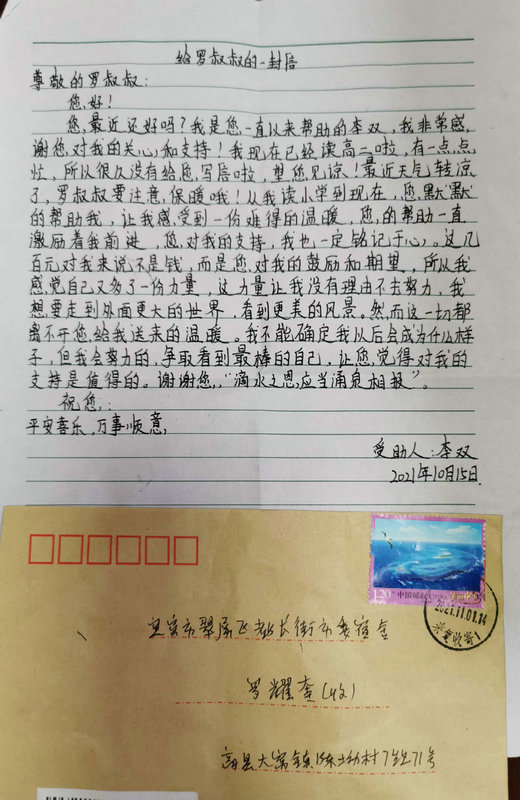 给罗叔叔的一封信
尊敬的罗叔叔:
您,好!
您,最近还好吗?我是您一直以来帮助的李双,我非常感
谢您,对我的关心和支持!我现在已经读高二啦,有一点点
忙,所以很久没有给您,写信啦,望您见谅!最近天气转凉
了,罗叔叔要注意,保暖哦!从我读小学到现在,您,默默
的帮助我,让我感受到一份难得的温暖,您,的帮助一直
激励着我前进,您,对我的支持,我也一定铭记于心。这几
百元对我来说不是钱,而是您,对我的鼓励和期望,所以我
感,觉自己又多了一份力量,这力量让我没有理由不去努力,我
想要走到外面更大的世界,看到更美的风景。然而这一切都
离不开您,给我送来的温暖。我不能确定我以后会成为什么样
子,但我会努力的,争取看到最棒的自己,让您,觉得对我的
支持是值得的。谢谢您,,“滴水之恩,应当涌泉相报”。
祝您,:
平安喜乐,万事顺意,
受助人:李双
2021年10月15日.
1.20元 中国邮政 CHINA
2021.11.01.14
宜宾市翠屏区 长街市委宿舍
罗耀奎(收)
高县大窝镇 村7组71号